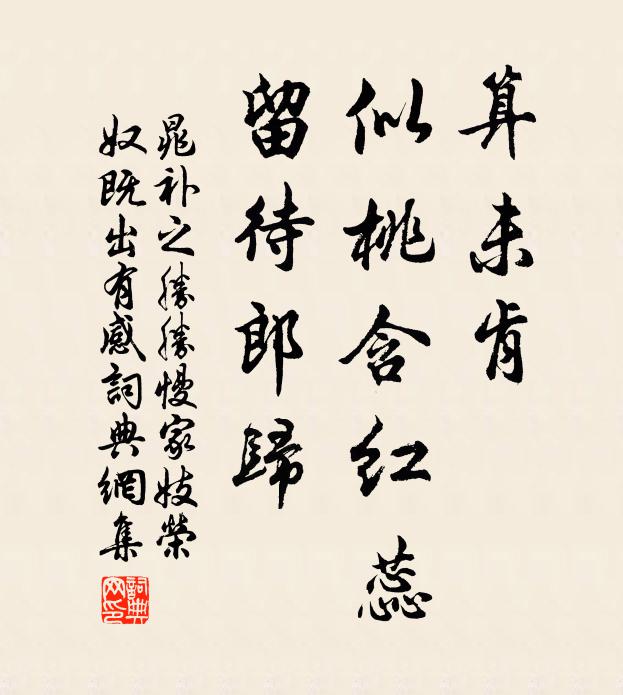 算未肯
似桃含红蕊
留待郎歸
晁补之勝勝慢家妓榮
奴既出有感詞典網集
詞典网印